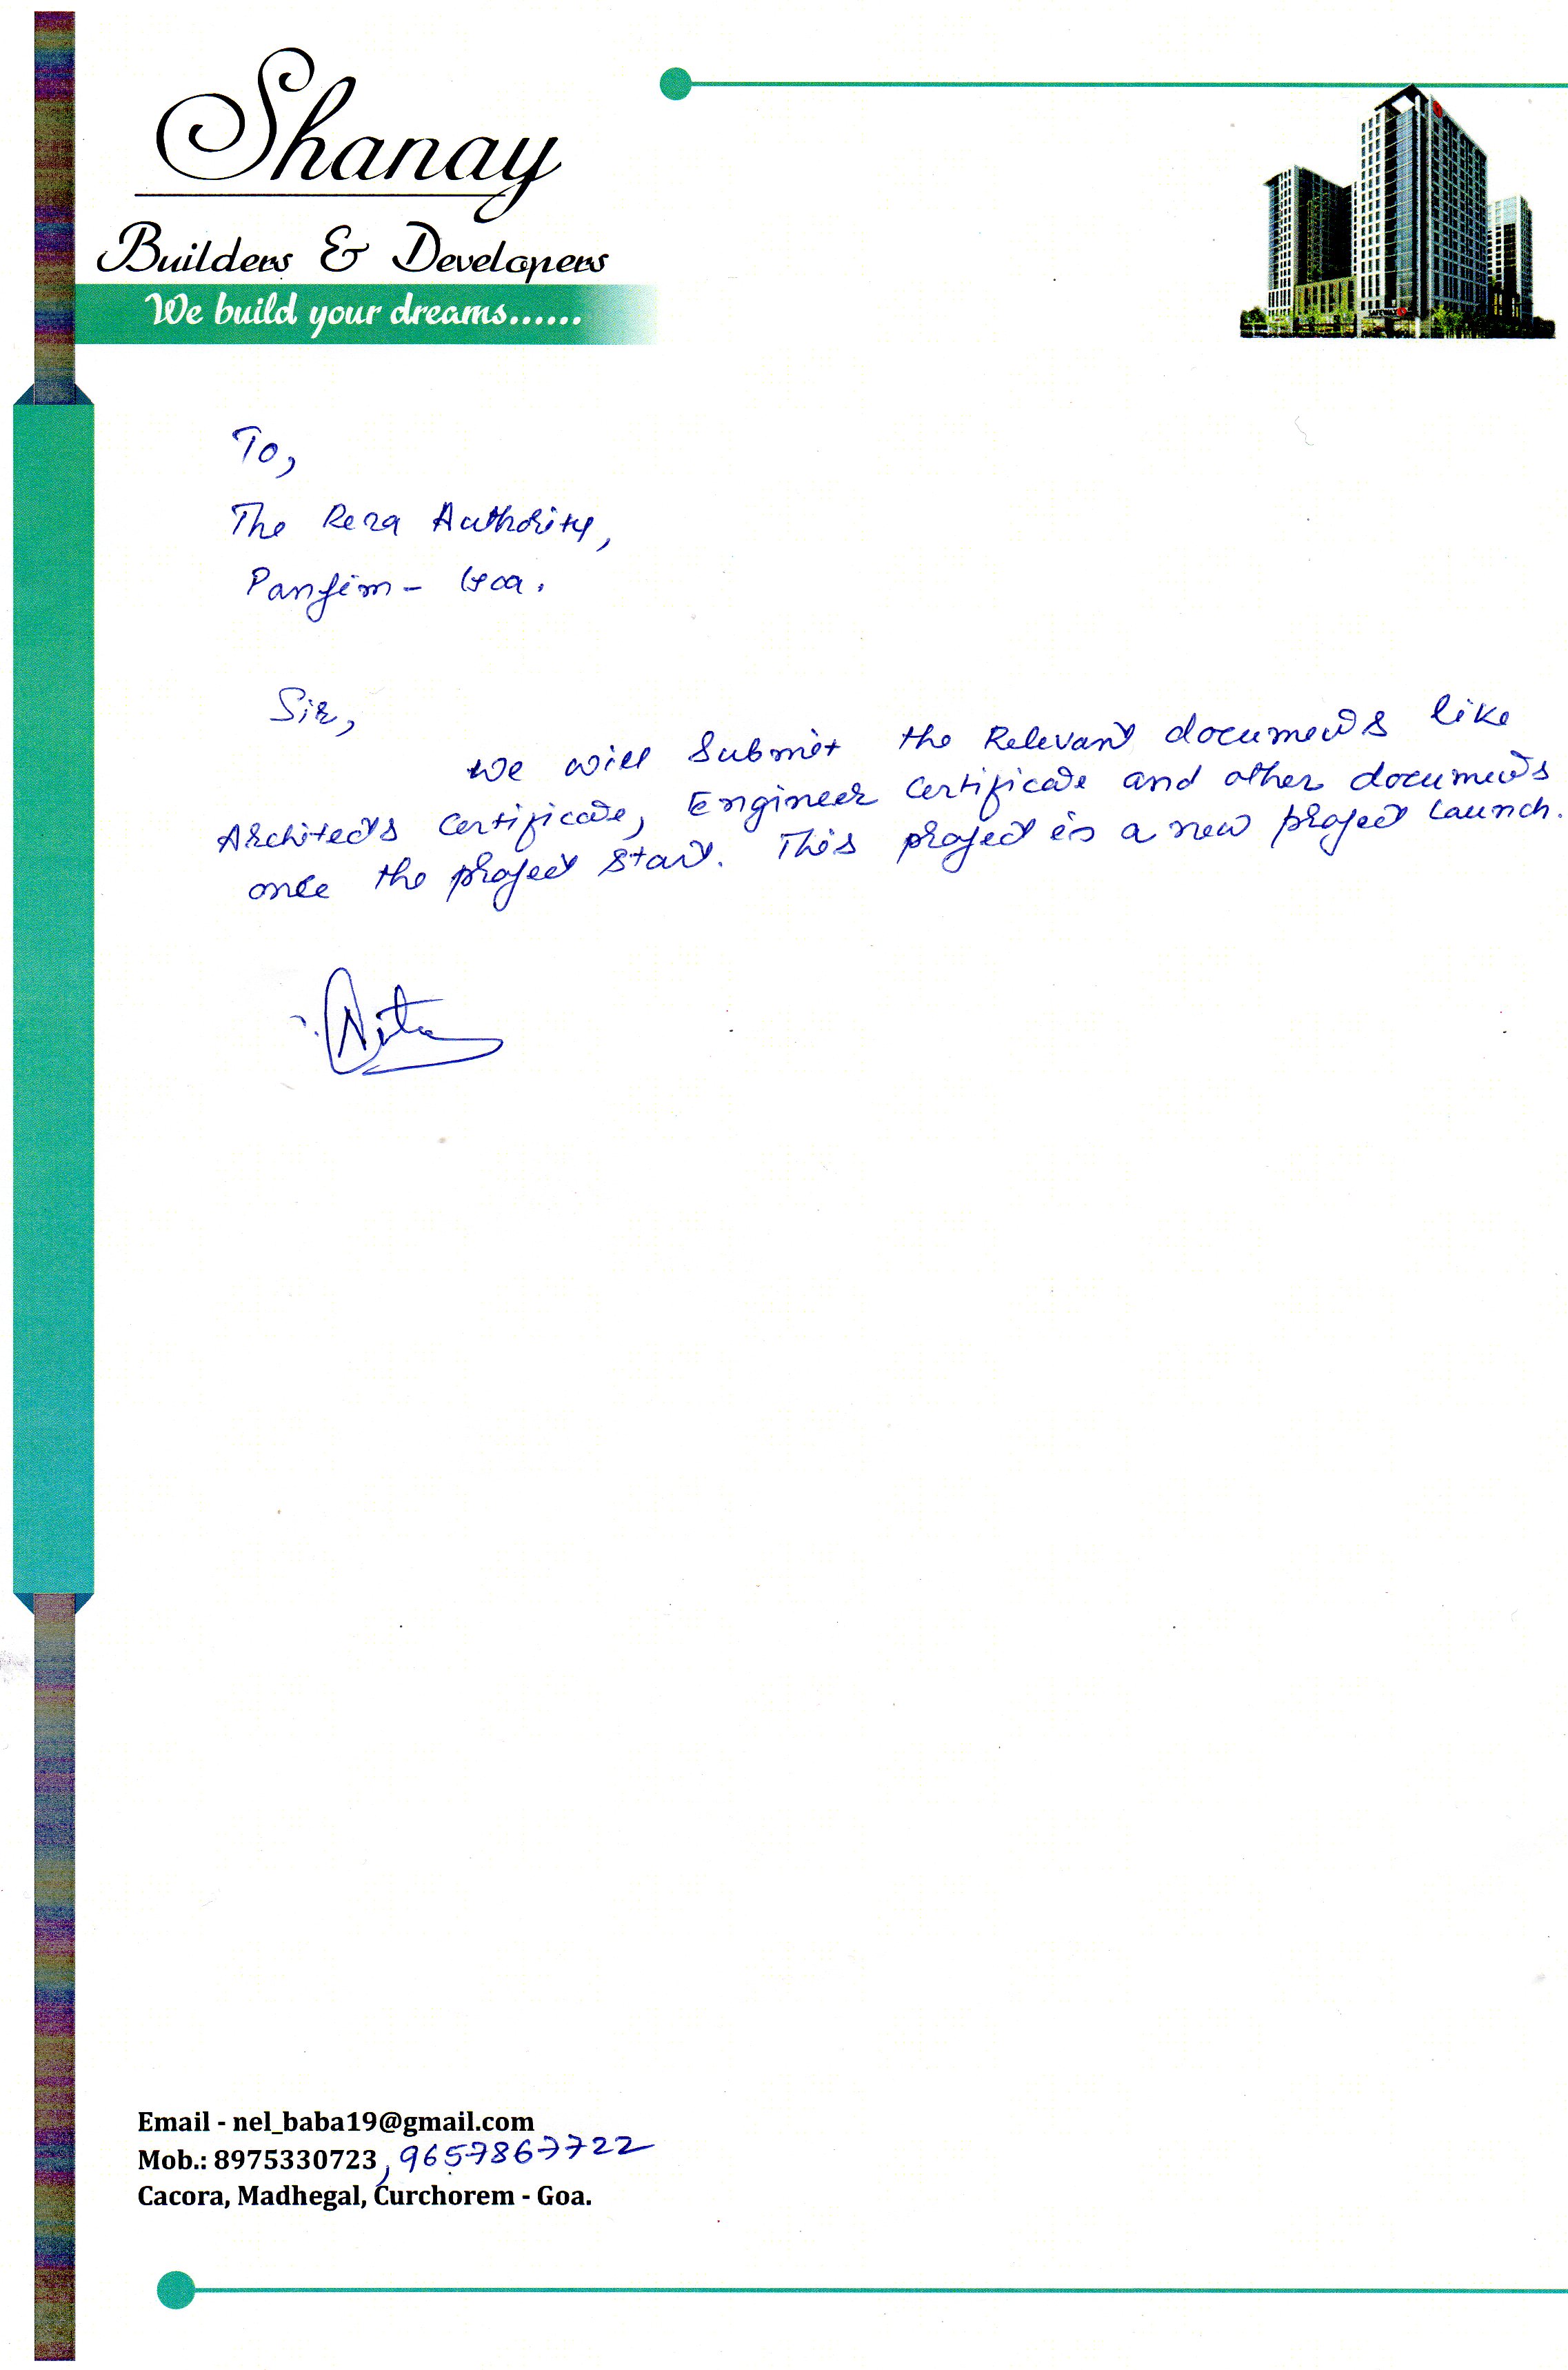 Shanay
Builders & Developers
We build your dreams......
To,
The Rera Authority,
Panjim - Goa.
Sir,
We will Submit the Relevant documents like
Architects Certificate, Engineer Certificate and other documents
once the project start. This project is a new project launch.
Email - nel_baba19@gmail.com
Mob.: 8975330723, 9657867722
Cacora, Madhegal, Curchorem - Goa.